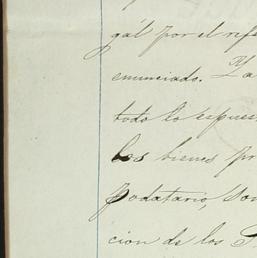 gal por el refe
enunciado. Ya
todo lo espues
los bienes pr
podatario, don
cion de los P